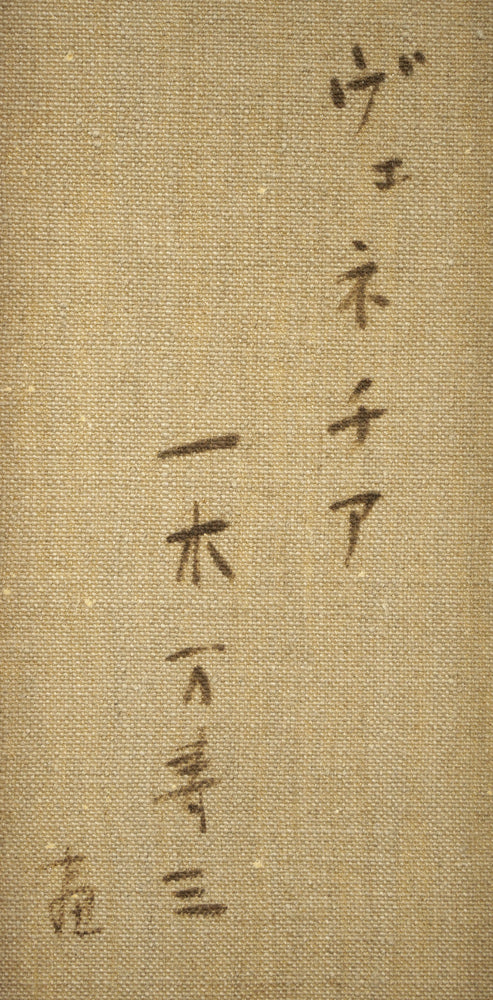 ヴェネチア
一木万寿三
画